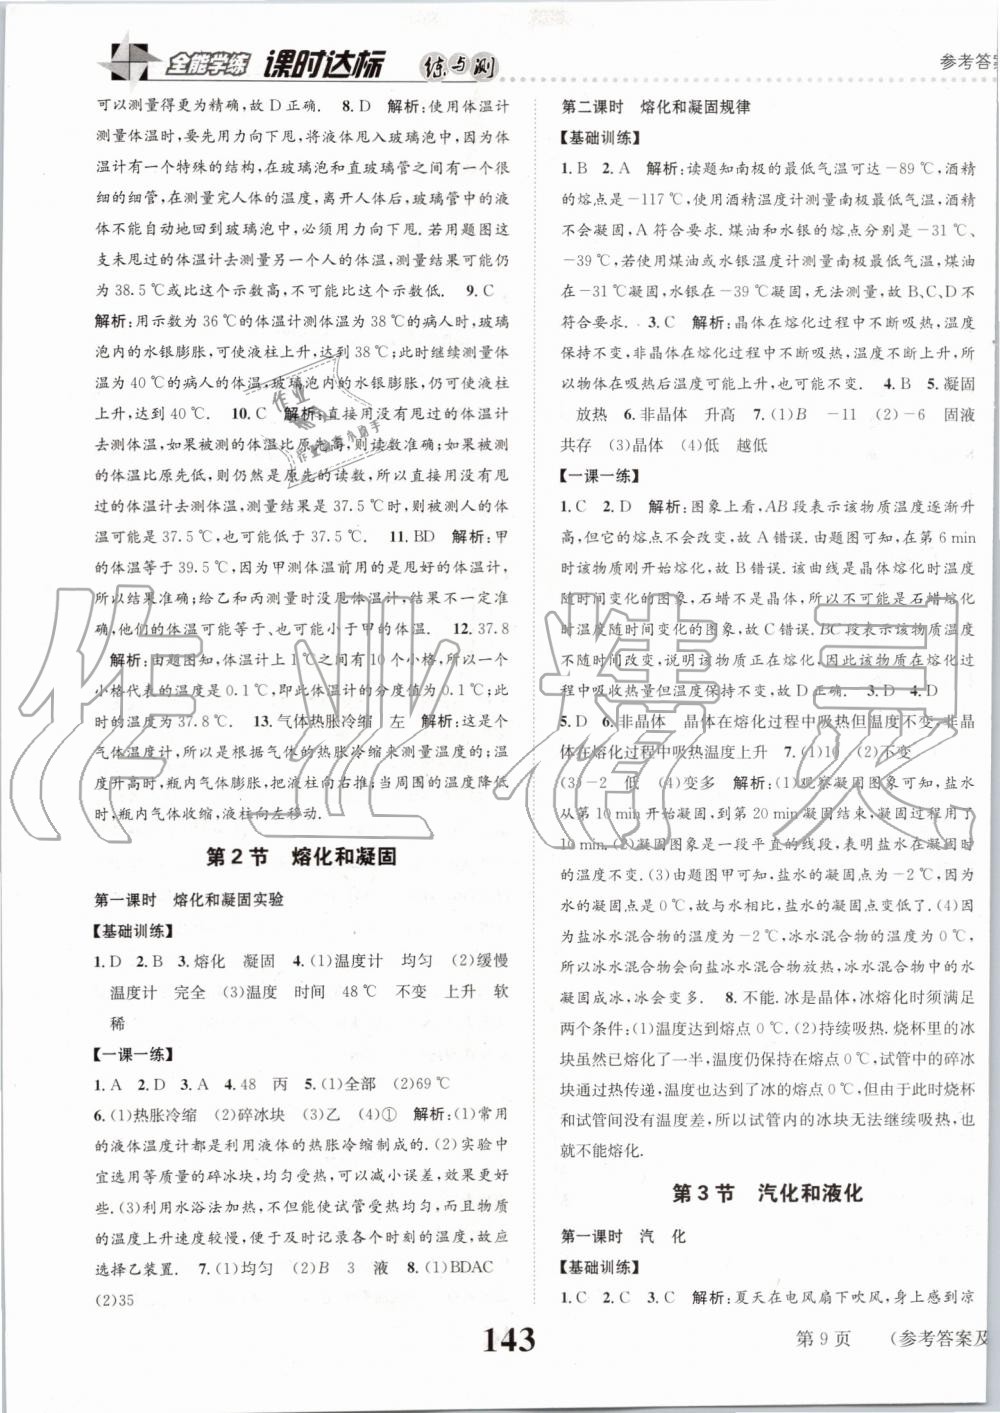 全能学练 课时达标 练与测
参考答案
可以测量得更为精确,故 D 正确. 8. D 解析:使用体温计
测量体温时,要先用力向下甩,将液体甩入玻璃泡中,因为体
温计有一个特殊的结构,在玻璃泡和直玻璃管之间有一个很
细的细管,在测量完人体的温度,离开人体后,玻璃管中的液
体不能自动地回到玻璃泡中,必须用力向下甩. 由于题图这
支未甩过的体温计去测量另一病人时,测量结果可能仍
为 38.5 ℃或比这个示数高,不可能比这个示数低. 9. C
解析:用示数为 36 ℃的体温计测体温为 38 ℃的病人时,玻璃
泡内的水银膨胀,可使液柱上升,达到 38 ℃;此时继续测量体
温为 40 ℃的病人的体温,玻璃泡内的水银膨胀,可使液柱
上升,达到 40 ℃. 10. C 解析:直接用没有甩过的体温计
去测体温,如果被测的体温比原先高,则读数准确;如果被测
的体温比原先低,则仍然是原先的读数,所以直接用没有甩过
的体温计去测体温,测量结果是 37.5 ℃,则被测者的实际体
温可能是 37.5 ℃,也可能低于 37.5 ℃. 11. BD 解析:甲
的体温等于 39.5 ℃,因为甲测体温前用的是甩好的体温计,
所以结果准确;给乙和丙测量时没甩体温计,结果不一定准
确,他们的体温可能等于、也可能小于甲的体温. 12. 37.8
解析:由题图知,体温计上 1 ℃之间有 10 个小格,所以一个
小格代表的温度是 0.1 ℃,即此体温计的分度值为 0.1 ℃;此
时的温度为 37.8 ℃. 13. 气体热胀冷缩 左 解析:这是个
气体温度计,所以是根据气体的热胀冷缩来测量温度的;温
度升高时,瓶内气体膨胀,把液柱向右推;当周围的温度降低
时,瓶内气体收缩,液柱向左移动.
第 2 节 熔化和凝固
第一课时 熔化和凝固实验
【基础训练】
1. D 2. B 3. 熔化 凝固 4. (1)温度计 均匀 (2)缓慢
温度计 完全 (3)温度 时间 48 ℃ 不变 上升 软
稀
【一课一练】
1. A 2. D 3. A 4. 48 丙 5. (1)全部 (2)69 ℃
6. (1)热胀冷缩 (2)碎冰块 (3)乙 (4)① 解析:(1)常用
的液体温度计都是利用液体的热胀冷缩制成的. (2)实验中
宜选用等质量的碎冰块,均匀受热,可以减小误差,效果更好
些. (3)利用水浴法加热,不但能使试管受热均匀,而且物质
的温度上升速度较慢,便于及时记录各个时刻的温度,故应
选择乙装置. 7. (1)均匀 (2)B 3 液 8. (1)BDAC
(2)35
第二课时 熔化和凝固规律
【基础训练】
1. B 2. A 解析:读题知南极的最低气温可达-89 ℃,酒精
的熔点是-117 ℃,使用酒精温度计测量南极最低气温,酒精
不会凝固,A 符合要求. 煤油和水银的熔点分别是-31 ℃、
-39 ℃,若使用煤油或水银温度计测量南极最低气温,煤油
在-31 ℃凝固,水银在-39 ℃凝固,无法测量,故 B、C、D 不
符合要求. 3. C 解析:晶体在熔化过程中不断吸热,温度
保持不变,非晶体在熔化过程中不断吸热,温度不断上升,所
以物体在吸热后温度可能上升,也可能不变. 4. B 5. 凝固
放热 6. 非晶体 升高 7. (1)B -11 (2)-6 固液
共存 (3)晶体 (4)低 越低
【一课一练】
1. C 2. D 解析:图象上看,AB 段表示该物质温度逐渐升
高,但它的熔点不会改变,故 A 错误. 由题图可知,在第 6 min
时该物质刚开始熔化,故 B 错误. 该曲线是晶体熔化过程中温度
随时间变化的图象,石蜡不是晶体,所以不可能是石蜡熔化
时温度随时间变化的图象,故 C 错误. BC 段表示该物质温度
不随时间改变,说明该物质正在熔化,因此该物质在熔化过
程中吸收热量但温度保持不变,故 D 正确. 3. D 4. D
5. D 6. 非晶体 晶体在熔化过程中吸热但温度不变,非晶
体在熔化过程中吸热温度上升 7. (1)10 (2)不变
(3)-2 低 (4)变多 解析:(1)观察凝固图象可知,盐水
从第 10 min 开始凝固,到第 20 min 凝固结束,凝固用了
10 min. (2)凝固图象是一段平直的线段,表明盐水在凝固时
的温度不变. (3)由题图甲可知,盐水的凝固点为-2 ℃,因为
水的凝固点为 0 ℃,故与水相比,盐水的凝固点变低了. (4)因
为盐冰水混合物的温度为-2 ℃,冰水混合物的温度为 0 ℃,
所以冰水混合物会向盐冰水混合物放热,冰水混合物中的水
凝固成冰,冰会变多. 8. 不能. 冰是晶体,冰熔化时须满足
两个条件:(1)温度达到熔点 0 ℃. (2)持续吸热. 烧杯里的冰
块虽然已熔化了一半,温度仍保持在熔点 0 ℃,试管中的碎冰
块通过热传递,温度也达到了冰的熔点 0 ℃,但由于此时烧杯
和试管间没有温度差,所以试管内的冰块无法继续吸热,也
就不能熔化.
第 3 节 汽化和液化
第一课时 汽 化
【基础训练】
1. C 2. C 3. C 解析:夏天在电风扇下吹风,身上感到凉
143
第 9 页 (参考答案及